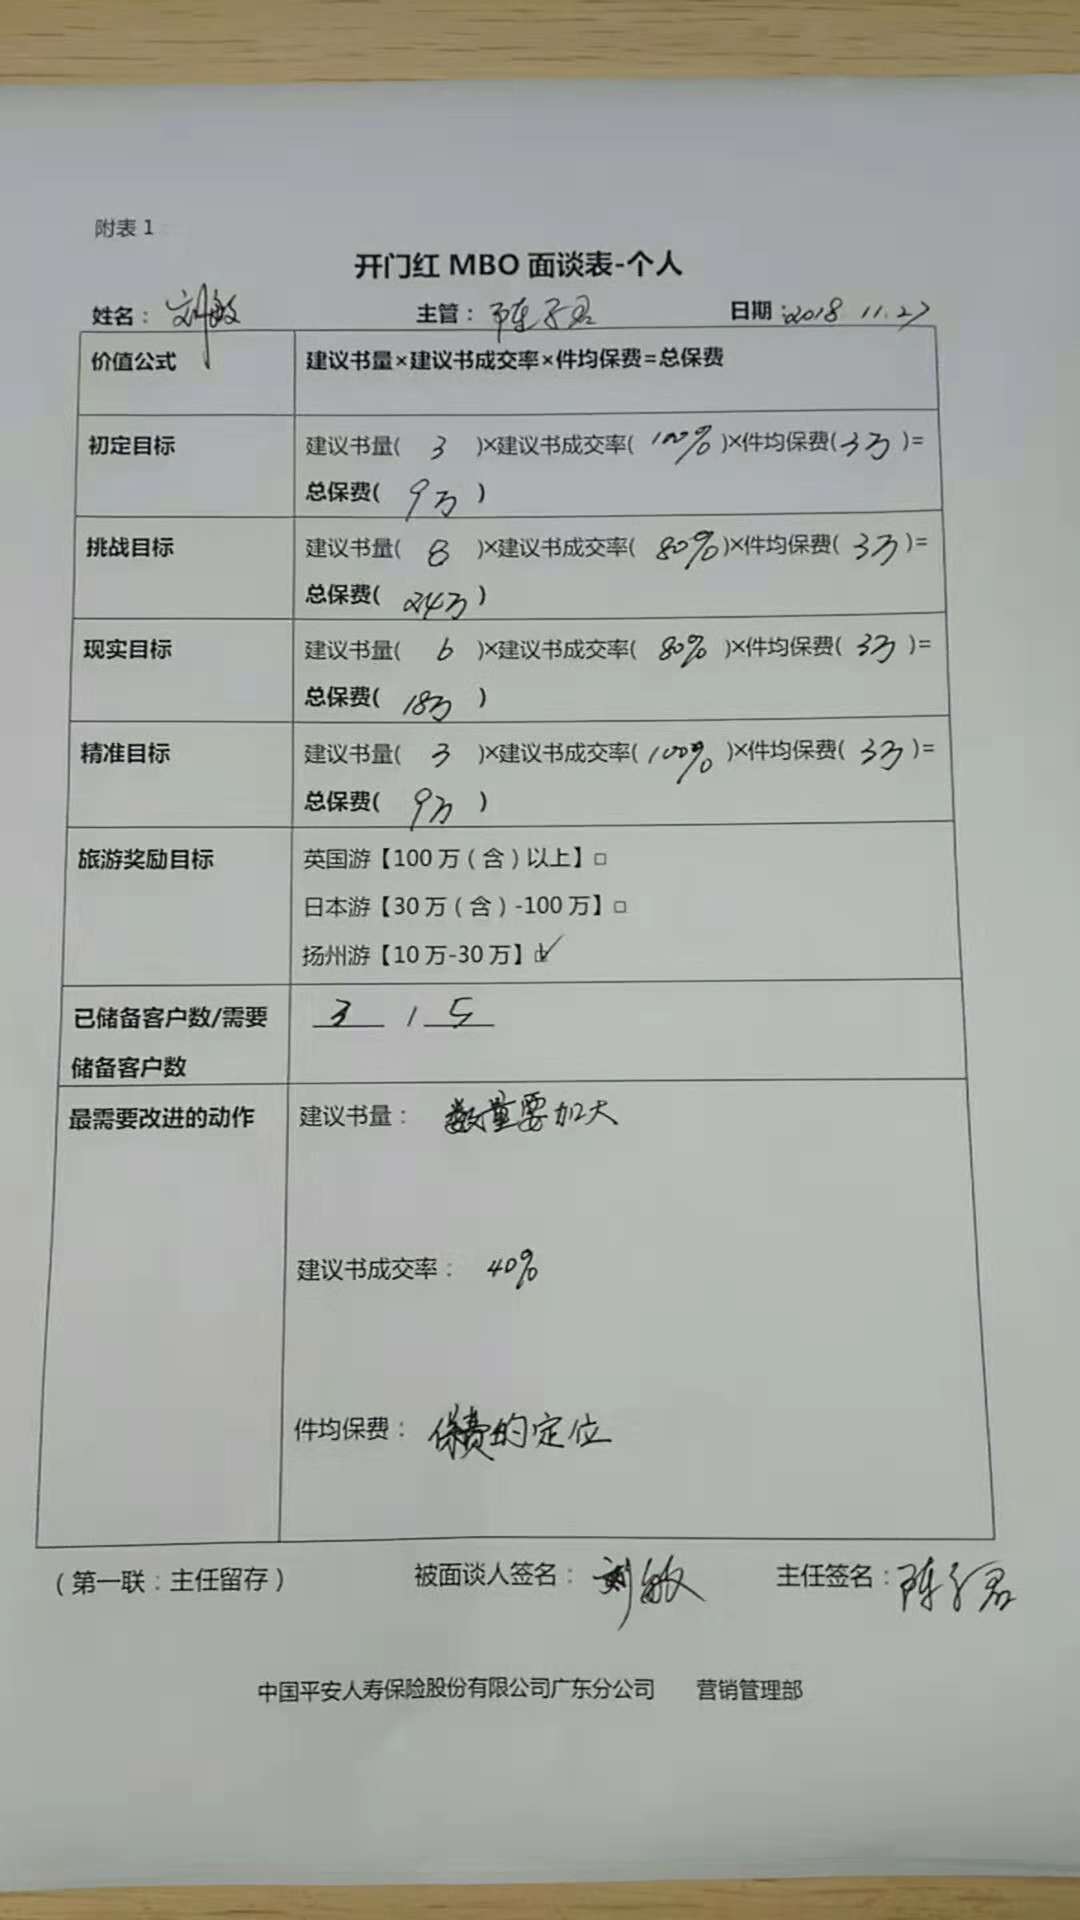 附表 1
开门红 MBO 面谈表-个人
姓名：刘敏 主管：陈子君 日期：2018 11.27
价值公式 建议书量×建议书成交率×件均保费=总保费
初定目标 建议书量( 3 )×建议书成交率( 100% )×件均保费( 3万 )=
总保费( 9万 )
挑战目标 建议书量( 8 )×建议书成交率( 80% )×件均保费( 3万 )=
总保费( 24万 )
现实目标 建议书量( 6 )×建议书成交率( 80% )×件均保费( 3万 )=
总保费( 18万 )
精准目标 建议书量( 3 )×建议书成交率( 100% )×件均保费( 3万 )=
总保费( 9万 )
旅游奖励目标 英国游【100 万（含）以上】□
日本游【30 万（含）-100 万】□
扬州游【10 万-30 万】☑
已储备客户数/需要 3 / 5
储备客户数
最需要改进的动作 建议书量： 数量要加大
建议书成交率： 40%
件均保费： 保费的定位
（第一联：主任留存） 被面谈人签名：刘敏 主任签名：陈子君
中国平安人寿保险股份有限公司广东分公司 营销管理部